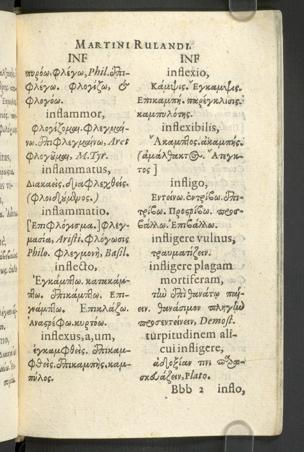 MARTINI RULANDI.
INF
πυρόω. Φλέγω, Phil. ἐπι-
φλέγω. Φλογίζω, &
Φλογόω.
inflammor,
Φλογίζομαι. Φλεγμαί-
νω. ἐπιφλεγμαίνω, Aret
Φλογῶμαι, M.Tyr.
inflammatus,
Διακαεὶς, διαφλεχθείς.
inflammatio.
[Ἐπιφλόγισμα.] Φλεγ-
μασία, Aristi. Φλόγωσις
Philo. Φλεγμονὴ, Basil.
inflecto,
Ἐγκάμπτω. κατακάμ-
πτω. ἐπικάμπτω. Ἐπι-
γνάμπτω. Ἐπικλάζω.
Ἀναστρέφω. κυρτόω.
inflexus, a, um,
ἐγκαμφθεὶς. ἐπικαμ-
φθείς. ἐπικαμπὴς. καμ-
πύλος.
INF
inflexio,
Κάμψις. Ἔγκαμψις.
Ἐπικαμπὴ. παρέγκλισις.
καμπυλότης.
inflexibilis,
Ἄκαμπτος. ἀκαμπὴς.
(ἀμάλακτος. Ἄτεγκ-
τος]
infligo,
Ἐντείνω. ἐντρίβω. ἐπι-
τρίβω. Προστρίβω. προσ-
βάλλω. Ἐπιβάλλω.
infligere vulnus,
τραυματίζειν.
infligere plagam
mortiferam,
ἐπιθανάτω παί-
ειν. θανάσιμον πληγὴν
προσεντείνειν, Demost.
turpitudinem ali-
cui infligere,
ἀδοξίαν τινὶ παρα-
σκευάζειν, Plato.
Bbb 2 inflo,